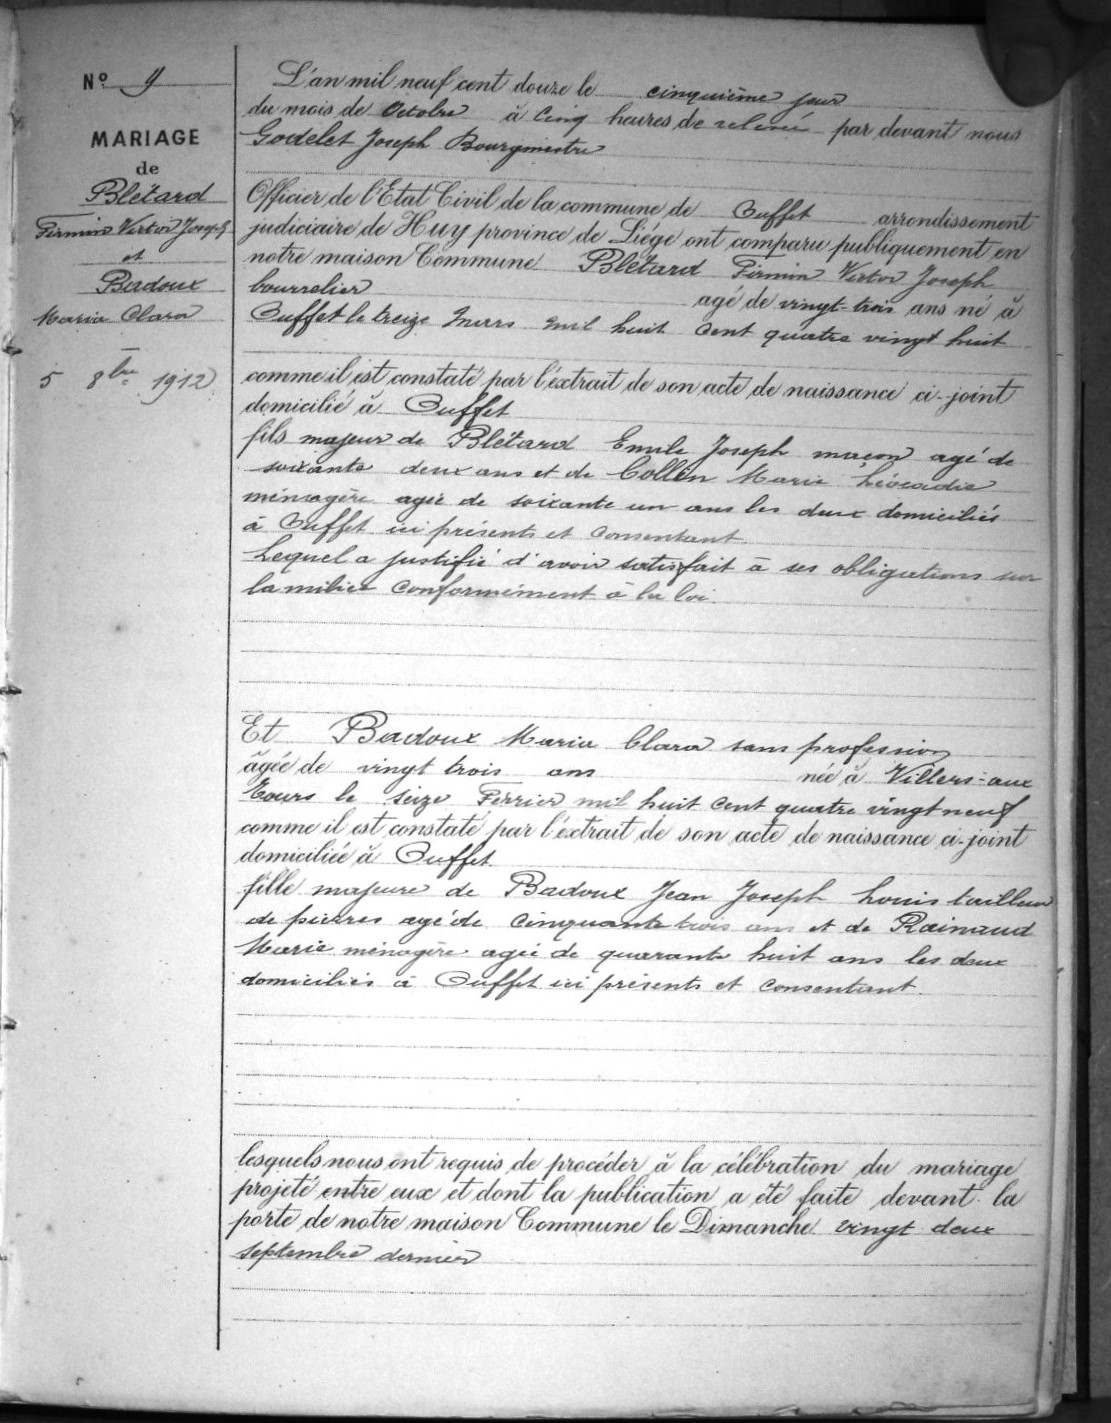 Nº 9
MARIAGE
de
Blétard
Firmin Victor Joseph
et
Badoux
Maria Clara
5 8bre 1912
L'an mil neuf cent douze le cinquième jour
du mois de Octobre à Cinq heures de relevée par devant nous
Godelet Joseph Bourgmestre
Officier de l'Etat Civil de la commune de Ouffet arrondissement
judiciaire de Huy province de Liége ont comparu publiquement en
notre maison Commune Blétard Firmin Victor Joseph
bourrelier agé de vingt-trois ans né à
Ouffet le treize Mars mil huit cent quatre vingt huit
comme il est constaté par l'extrait de son acte de naissance ci-joint
domicilié à Ouffet
fils majeur de Blétard Emile Joseph maçon agé de
soixante deux ans et de Collin Marie Léocadie
ménagère agée de soixante un ans les deux domiciliés
à Ouffet ici présents et consentant
Lequel a justifié d'avoir satisfait à ses obligations sur
la milice conformément à la loi.
Et Badoux Maria Clara sans profession
âgée de vingt trois ans née à Villers-aux
Tours le seize Février mil huit cent quatre vingt neuf
comme il est constaté par l'extrait de son acte de naissance ci-joint
domiciliée à Ouffet.
fille majeure de Badoux Jean Joseph Louis tailleur
de pierres agé de cinquante trois ans et de Rainaud
Marie ménagère agée de quarante huit ans les deux
domiciliés à Ouffet ici présents et consentant.
lesquels nous ont requis de procéder à la célébration du mariage
projeté entre eux et dont la publication a été faite devant la
porte de notre maison Commune le Dimanche vingt deux
septembre dernier